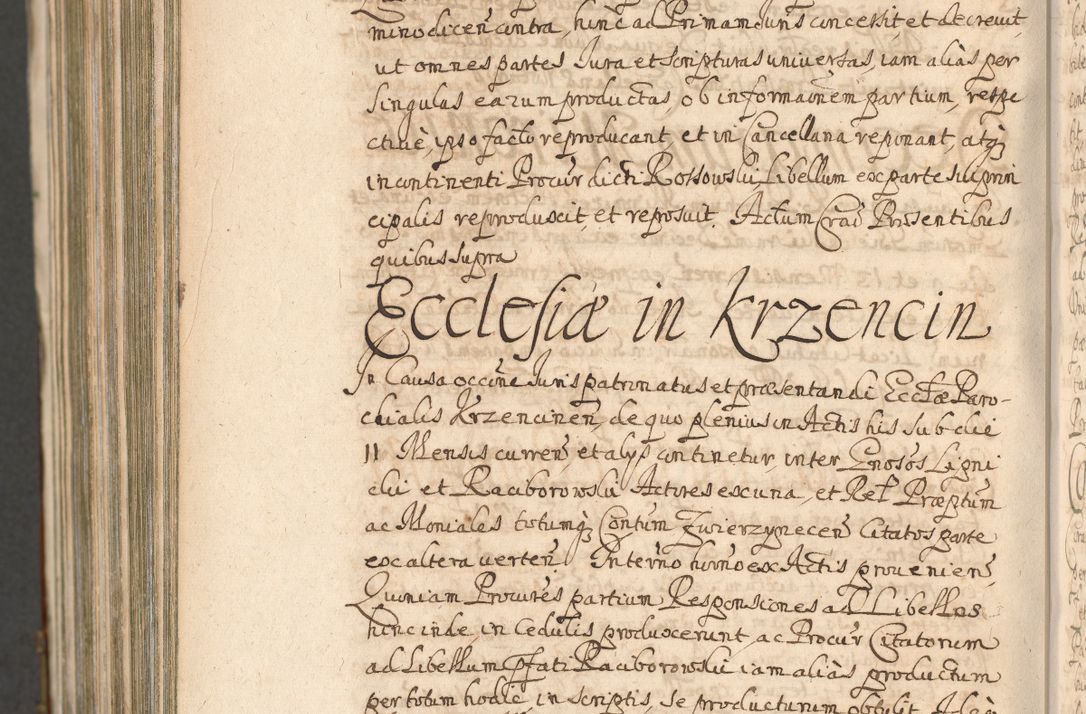 minodiceñ contra, hinc ad Primam Juris concessit, et decrevit,
ut omnes partes Jura et scripturas universas, iam aliàs per
singulas earum productas, ob informaõnem partium, respe
ctivè, ipso facto reproducant, et in Cancellaria reponant, atq3
incontinenti Procur̃ dicti Rossowski Libellum ex parte sui prin
cipalis reproduxit, et reposuit. Actum Crac̃ Presentibus
quibus supra
Ecclesiæ in Krzencin
In Causa occõne Juris patronatus et præsentandi Ecctæ Paro-
chialis Krzencineñ, de quo plenius in Actis his sub die
11 Mensis curreñ, et alys continetur, inter Gnosos Ligni
cki et Raciborowski Actores ex una, et Rel. Præptum
ac Moniales totumq3 Contum Zwierzyneceñ Citatos parte
ex altera verteñ. In termo horno ex Actis provenieñ,
Quoniam Procures partium Responsiones ad Libellos
hinc inde, in Cedulis produxerunt, ac Procur̃ Citatorum
ad Libellum Pfati Raciborowski iam aliàs productum
per totum hodiè, in scriptis, se producturum obtulit